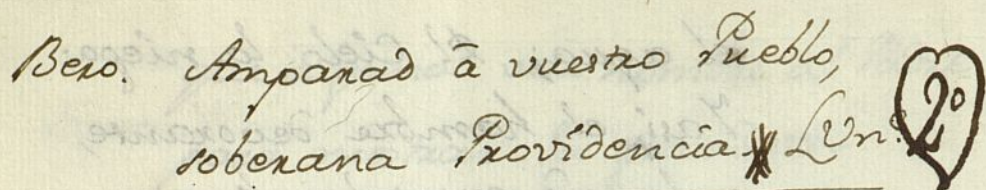 Bero. Amparad â vuestro Pueblo,
soberana Providencia Un.º 2º